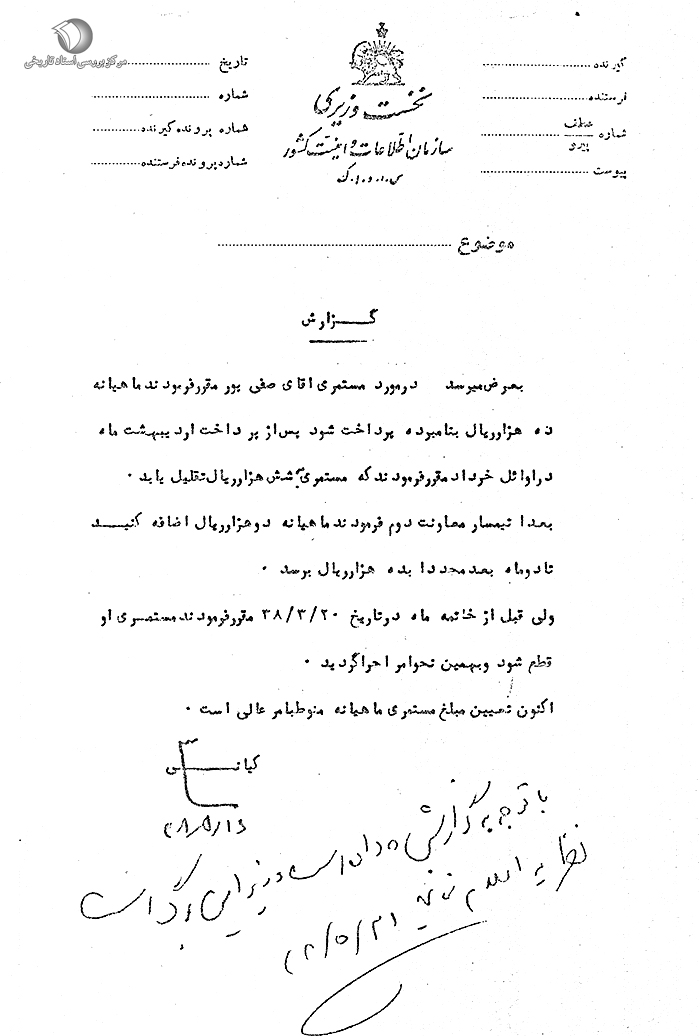 مرکز بررسی اسناد تاریخی
نخست وزیری
سازمان اطلاعات و امنیت کشور
س.ا.و.ا.ک
گیرنده
فرستنده
شماره عطف
پیرو
پیوست
تاریخ
شماره
شماره پرونده گیرنده
شماره پرونده فرستنده
موضوع
گـــزارش
بعرض میرسد در مورد مستمری اقای صفی پور مقرر فرمودند ماهیانه
ده هزار ریال بنامبرده پرداخت شود پس از پرداخت اردیبهشت ماه
در اوائل خرداد مقرر فرمودند که مستمری بشش هزار ریال تقلیل یابد .
بعدا تیمسار معاونت دوم فرمودند ماهیانه دو هزار ریال اضافه کنیـــد
تا دو ماه بعد مجددا بده هزار ریال برسد .
ولی قبل از خاتمه ماه در تاریخ ۳۸/۳/۲۰ مقرر فرمودند مستمـری او
قطع شود و بهمین نحو امر اجرا گردید .
اکنون تعیین مبلغ مستمری ماهیانه منوط بامر عالی است .
کیانـــی
با توجه به گزارش
نظریه اعلام نمائید